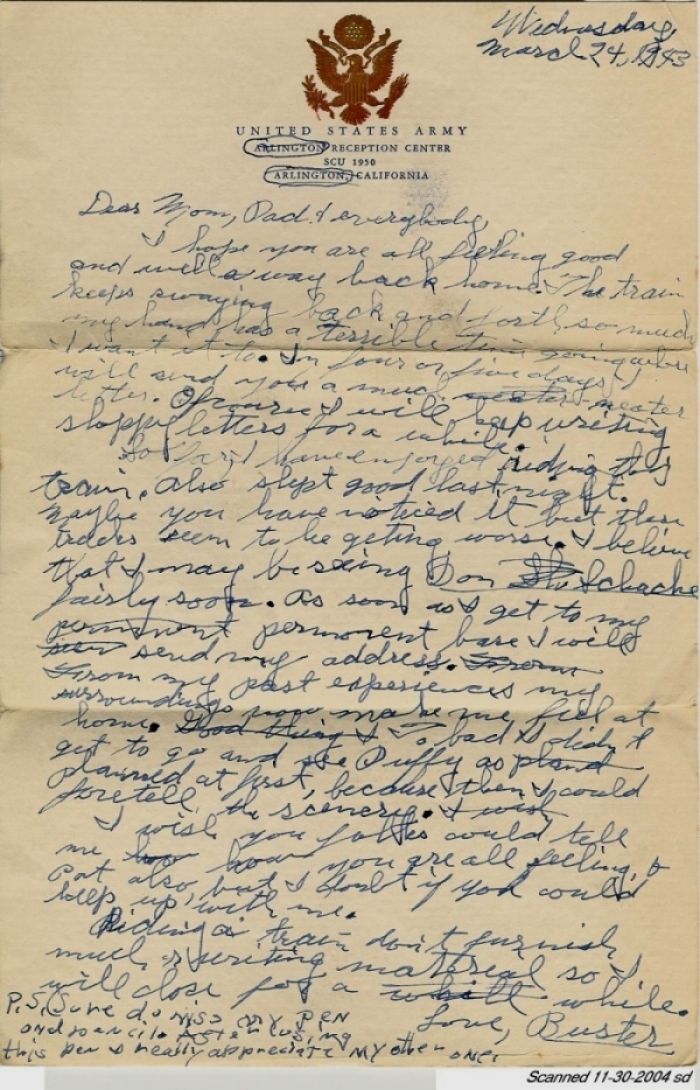 Wednesday,
March 24, 1943
UNITED STATES ARMY
ARLINGTON RECEPTION CENTER
SCU 1950
ARLINGTON, CALIFORNIA
Dear Mom, Dad & everybody,
I hope you are all feeling good
and well a way back home. The train
keeps swaying back and forth, so much
my hand has a terrible time going where
I want it to. In four or five days I
will send you a much neater neater
letter. Ofcourse I will keep writing
sloppy letters for a while.
So far I have enjoyed riding this
train. Also slept good last night.
Maybe you have noticed it but these
seem to be geting worse. I believe
that I may be seeing Don Schache
fairly soon. As soon as I get to my
perminent permonent base I will
send my address. From
From my past experiences my
surroundings now make me feel at
home. Good thing I To bad I didn't
get to go and see Duffy as pland
planned at first, because then I could
foretell the scenery. I wish
I wish you folkes could tell
me how how you are all feeling, &
Pat also, but I doubt if you could
keep up, with me.
Riding a train don't furnish
much writing matireal so I
will close for a while while.
Love, Buster
P.S. Sure do miss my pen
and pencil. After using
this pen I really appreciate my other one.
Scanned 11-30-2004 sd